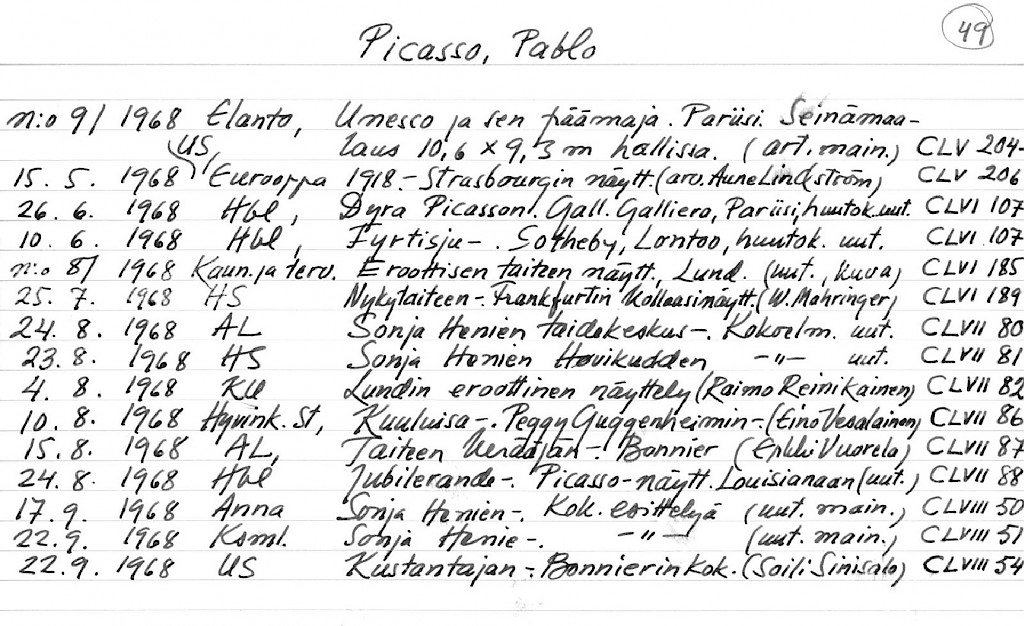 49
Picasso, Pablo
n:o 9/ 1968 Elanto, Unesco ja sen päämaja. Pariisi. Seinämaa-
laus 10,6 x 9,3 m hallissa. (art. main.) CLV 204
US,
15. 5. 1968 Eurooppa 1918.- Strasbourgin näytt. (arv. Aune Lindström) CLV 206
26. 6. 1968 Hbl, Dyra Picasson!. Gall. Galliera, Pariisi, huutok. uut. CLVI 107
10. 6. 1968 Hbl, Fyrtisju-. Sotheby, Lontoo, huutok. uut. CLVI 107
n:o 8/ 1968 Kaun. ja terv. Eroottisen taiteen näytt., Lund. (uut., kuva) CLVI 185
25. 7. 1968 HS Nykytaiteen-. Frankfurtin kolleasinäytt. (W. Mahringer) CLVI 189
24. 8. 1968 AL Sonja Henien taidekeskus-. Kokoelm. uut. CLVII 80
23. 8. 1968 HS Sonja Henien Hovikodden -"- uut. CLVII 81
4. 8. 1968 KU Lundin eroottinen näyttely (Raimo Reinikainen) CLVII 82
10. 8. 1968 Hyvink. St, Kuuluisa-. Peggy Guggenheimin- (Eino Vesalainen) CLVII 86
15. 8. 1968 AL, Taiteen kerääjän-. Bonnier (Erkki Vuorela) CLVII 87
24. 8. 1968 Hbl Jubilerande-. Picasso-näytt. Louisianaan (uut.) CLVII 88
17. 9. 1968 Anna Sonja Henien-. Kok. esittelyä (uut. main.) CLVIII 50
22. 9. 1968 Ksml. Sonja Henie-. -"- (uut. main.) CLVIII 51
22. 9. 1968 US Kustantajan-. Bonnierin kok. (Soili Sinisalo) CLVIII 54